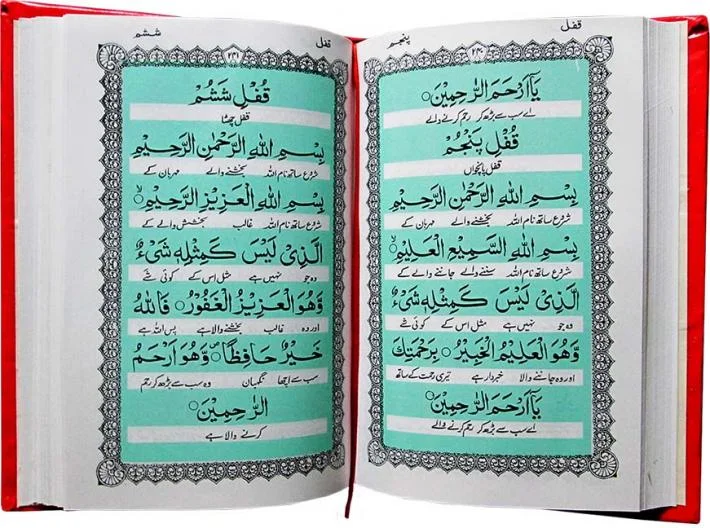 قفل
پنجم
۲۴۰
يَآ اَرْحَمَ الرَّاحِمِيْنَ○
اے سب سے بڑھ کر رحم کرنے والے
قُفْلِ پَنْجُمْ
قفل پانچواں
بِسْمِ اللهِ الرَّحْمٰنِ الرَّحِيْمِ
شروع ساتھ نام اللہ بخشنے والے مہربان کے
بِسْمِ اللهِ السَّمِيْعِ الْعَلِيْمِ ۙ
شروع ساتھ نام اللہ سننے والے جاننے والے کے
الَّذِىْ لَيْسَ كَمِثْلِهٖ شَىْءٌ
وہ جو نہیں ہے مثل اس کے کوئی شے
وَّهُوَ الْعَلِيْمُ الْخَبِيْرُ ○ بِرَحْمَتِكَ
اور وہ جاننے والا خبردار ہے تیری رحمت کے ساتھ
يَآ اَرْحَمَ الرَّاحِمِيْنَ○
اے سب سے بڑھ کر رحم کرنے والے
قفل
ششم
۲۴۱
قُفْلِ شَشُمْ
قفل چھٹا
بِسْمِ اللهِ الرَّحْمٰنِ الرَّحِيْمِ
شروع ساتھ نام اللہ بخشنے والے مہربان کے
بِسْمِ اللهِ الْعَزِيْزِ الرَّحِيْمِ ۙ
شروع ساتھ نام اللہ غالب بخشش والے کے
الَّذِىْ لَيْسَ كَمِثْلِهٖ شَىْءٌ
وہ جو نہیں ہے مثل اس کے کوئی شے
وَّهُوَ الْعَزِيْزُ الْغَفُوْرُ ○ فَاللهُ
اور وہ غالب بخشنے والا ہے پس اللہ ہے
خَيْرٌ حَافِظًا ۪ وَّهُوَ اَرْحَمُ
سب سے اچھا نگہبان وہ سب سے بڑھ کر رحم
الرَّاحِمِيْنَ○
کرنے والا ہے